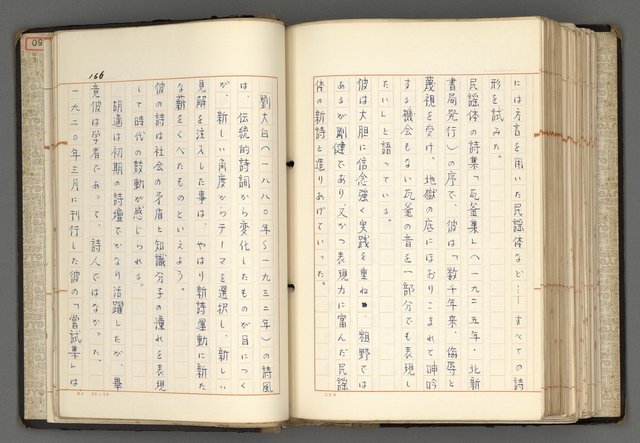 には方言を用いた民謡体など……すべての詩
形を試みた。
民謡体の詩集「瓦釜集」(一九二五年・北新
書局発行)の序で、彼は「数千年来、侮辱と
蔑視を受け、地獄の底にほおりこまれて呻吟
する機会もない瓦釜の音を一部分でも表現し
たい」と語っている。
彼は大胆に信念強く実践を重ね、粗野では
あるが剛健であり、又かつ表現力に富んだ民謡
体の新詩を造りあげていった。
166
劉大白(一八八〇年〜一九三二年)の詩風
は、伝統的詩詞から変化したものが目につく
が、新しい角度からテーマを選択し、新しい
見解を注入した事は、やはり新詩運動に新た
な薪をくべたものといえよう。
彼の詩は社会の矛盾と知識分子の憧れを表現
して時代の鼓動が感じられる。
胡適は初期の詩壇でかなり活躍したが、畢
竟彼は学者であって、詩人ではなかった。
一九二〇年三月に刊行した彼の「嘗試集」は